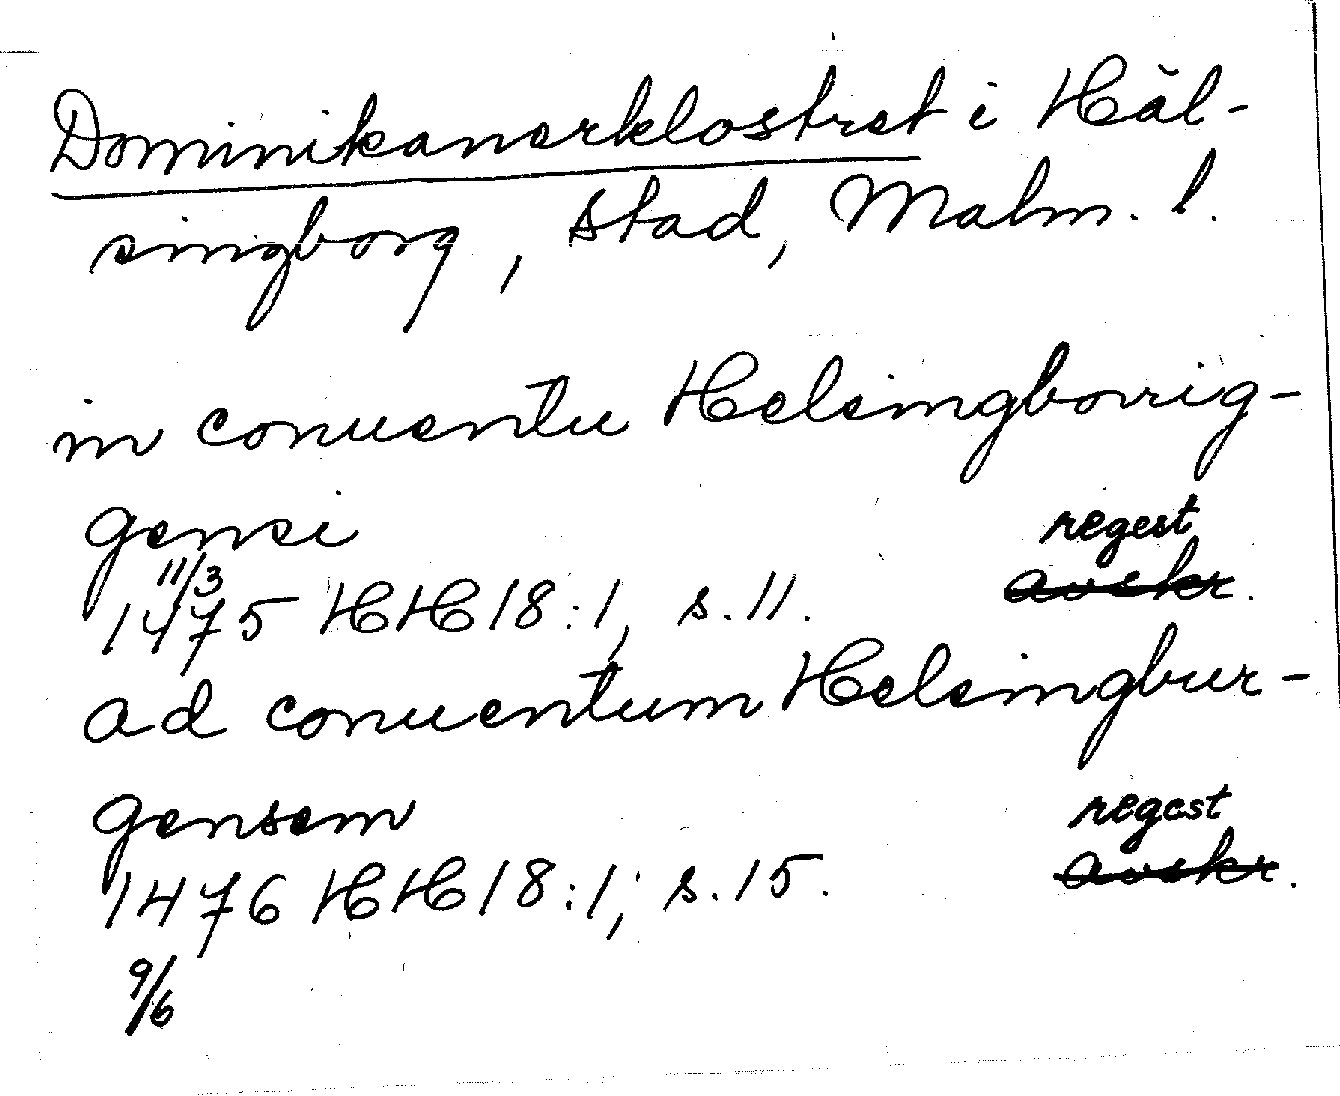 Dominikanerklostret i Häl-
singborg, stad, Malm. l.
in conuentu Helsingborrig-
gensi
regest
11/3
1475 HH 18:1, s. 11. avskr.
ad conuentum Helsingbur-
gensem
regest
1476 HH 18:1, s. 15. avskr.
9/6